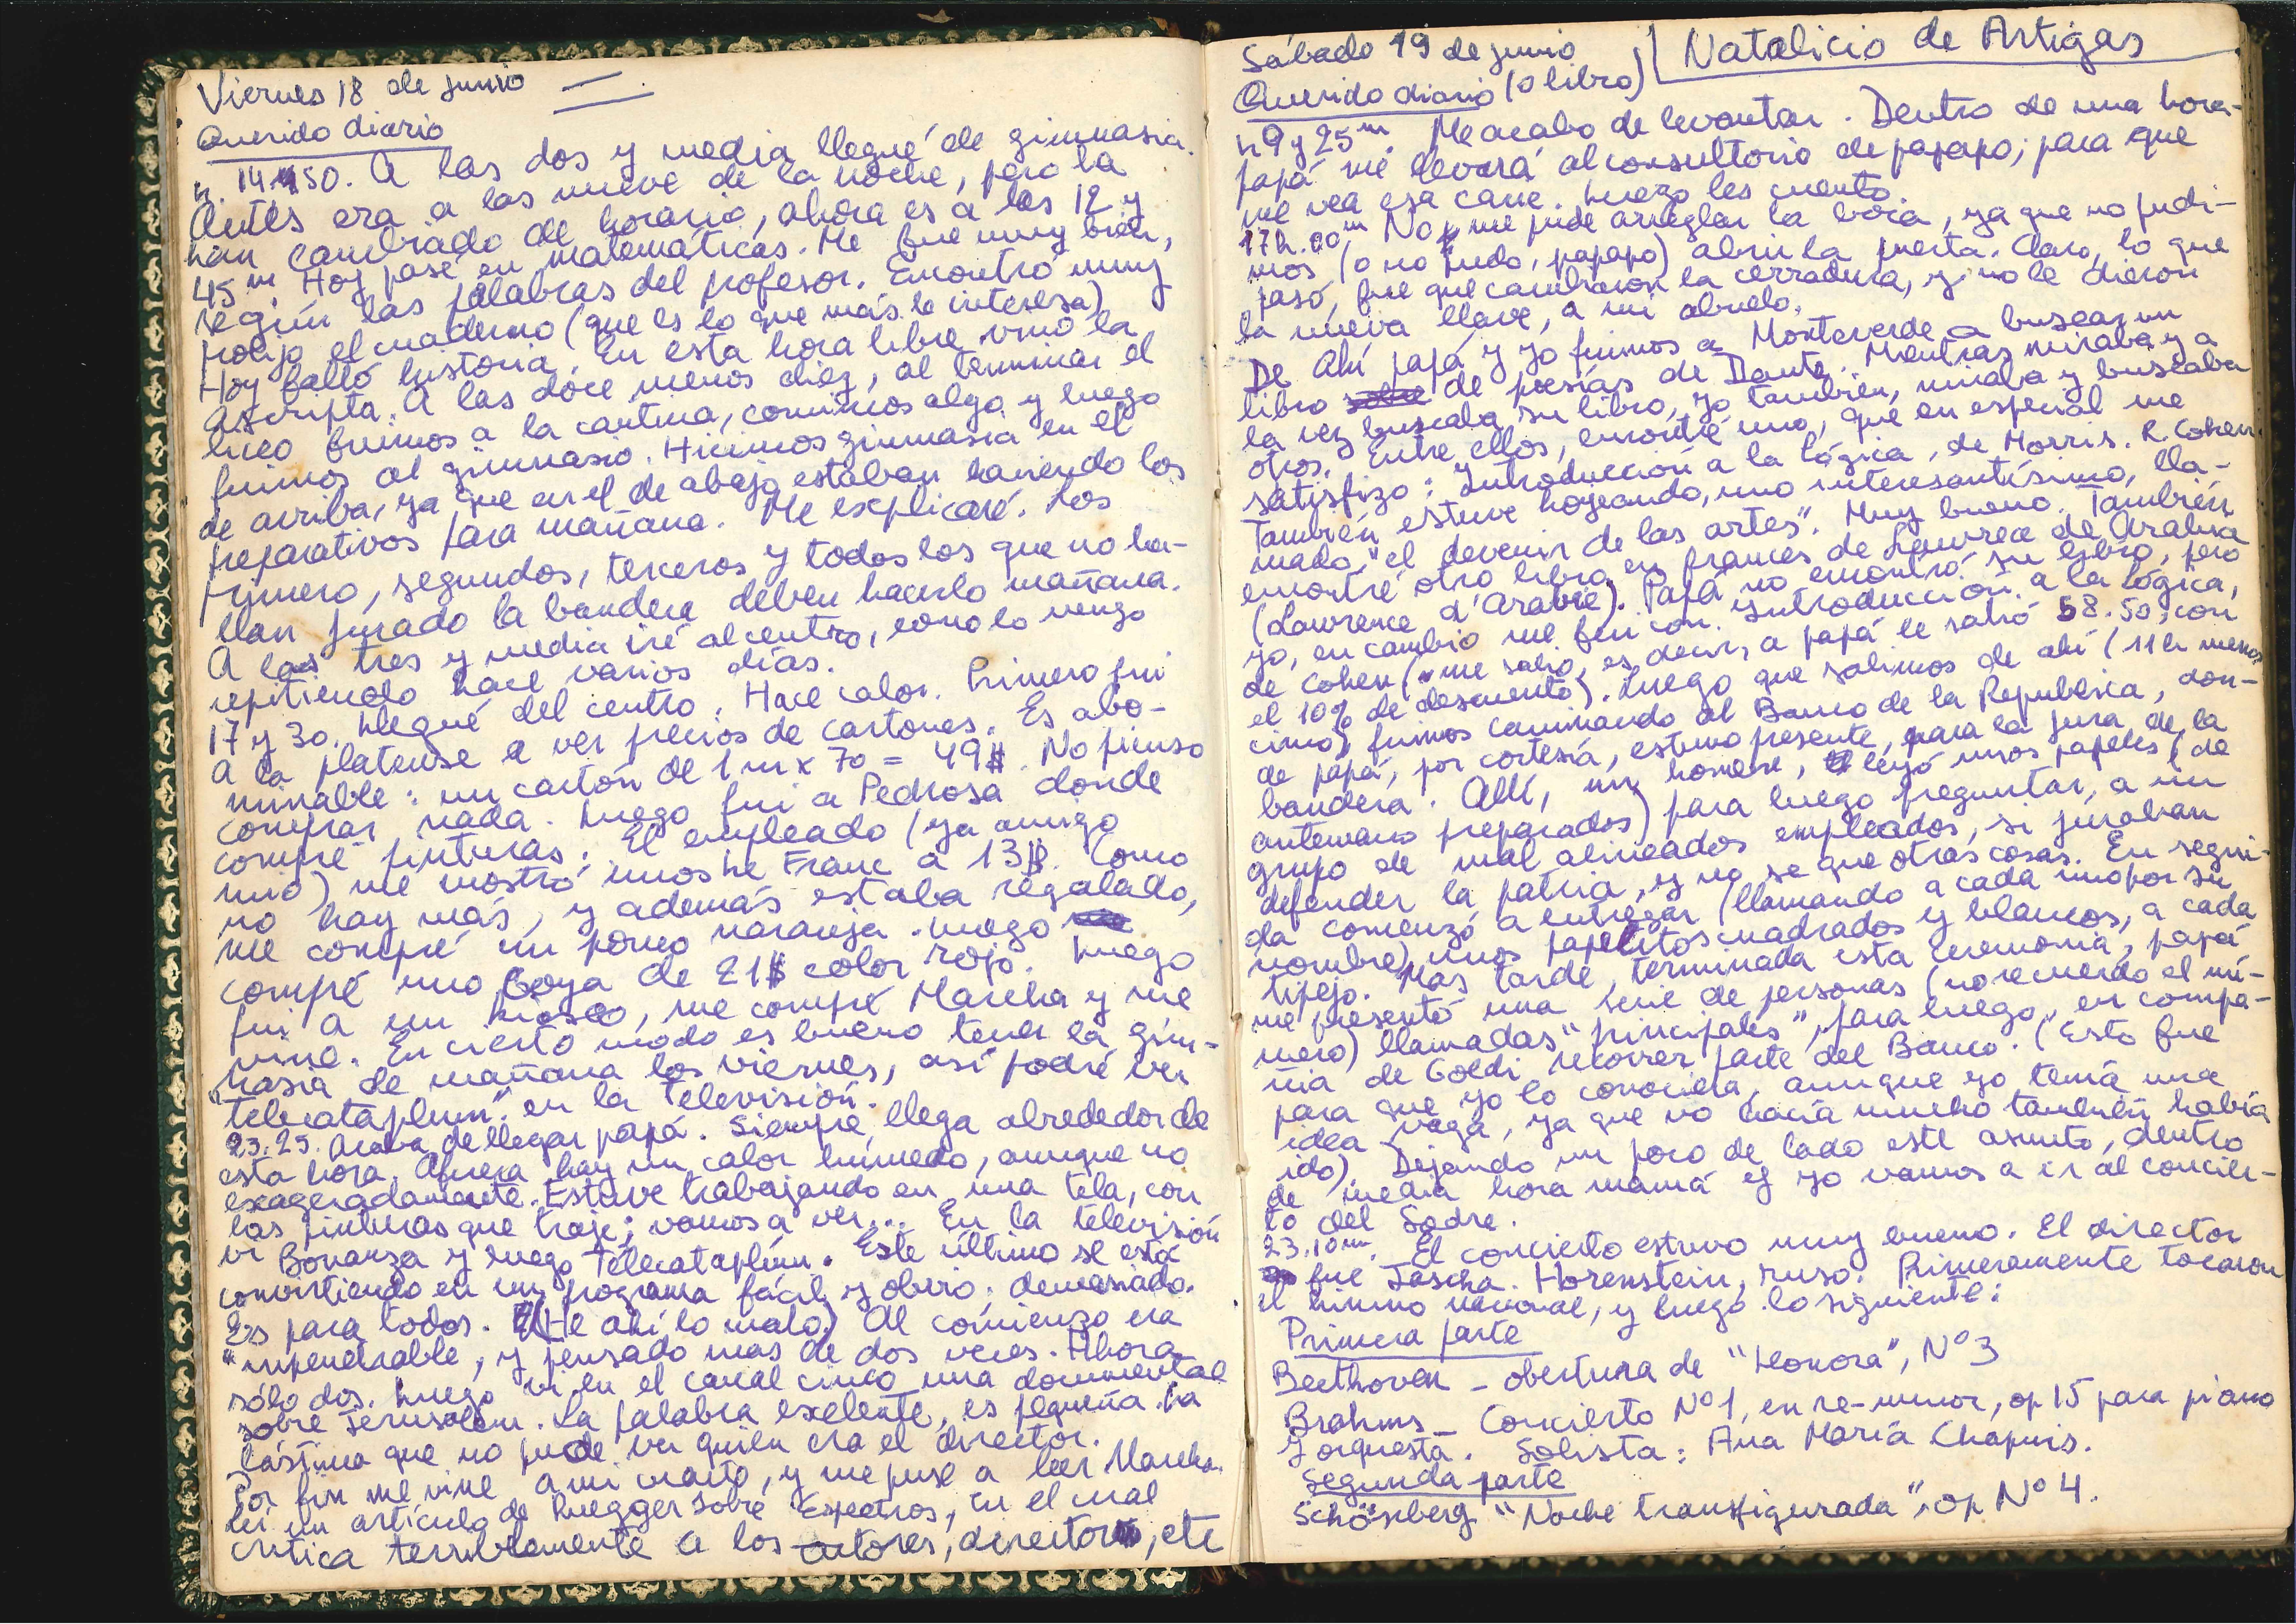 Viernes 18 de junio
Querido diario
h. 14.50. A las dos y media llegué de gimnasia.
Antes era a las nueve de la noche, pero la
han cambiado de horario, ahora es a las 12 y
45 m Hoy pasé en matemáticas. Me fue muy bien,
según las palabras del profesor. Encontró muy
prolijo el cuaderno (que es lo que más le interesa)
Hoy faltó historia. En esta hora libre vino la
Ascripta. A las doce menos diez, al terminar el
liceo fuimos a la cantina, comimos algo y luego
fuimos al gimnasio. Hicimos gimnasia en el
de arriba, ya que en el de abajo estaban haciendo los
preparativos para mañana. Me explicaré. Los
primero, segundos, terceros y todos los que no ha-
llan jurado la bandera deben hacerlo mañana.
A las tres y media iré al centro, como lo vengo
repitiendo hace varios días.
17 y 30. Llegué del centro. Hace calor. Primero fui
a la platense a ver precios de cartones. Es abo-
minable: un cartón de 1 m x 70 = 49$. No pienso
comprar nada. Luego fui a Pedrosa donde
compré pinturas. El empleado (ya amigo
mío) me mostró unos Le Franc a 13$. Como
no hay más, y además estaba regalado,
me compré un pomo naranja. Luego
compré uno Goya de 21$ color rojo. Luego
fui a un kiosco, me compré Marcha y me
vine. En cierto modo es bueno tener la gim-
nasia de mañana los viernes, así podré ver
"Telecataplum" en la televisión.
23.25. Acaba de llegar papá. Siempre llega alrededor de
esta hora. Afuera hay un calor húmedo, aunque no
exageradamente. Estuve trabajando en una tela, con
las pinturas que traje; vamos a ver... En la televisión
vi Bonanza y luego Telecataplúm. Este último se está
convirtiendo en un programa fácil y obvio. demasiado.
Es para todos. (He ahí lo malo) Al comienzo era
"impenetrable, y pensado mas de dos veces. Ahora
sólo dos. Luego vi en el canal cinco una documental
sobre Jerusalem. La palabra exelente, es pequeña. La
lástima que no pude ver quien era el director.
Por fin me vine a mi cuarto, y me puse a leer Marcha.
Leí un artículo de Ruegger sobre Espectros, en el cual
critica terriblemente a los actores, directores, etc
Sábado 19 de junio
Natalicio de Artigas
Querido diario (o libro)
h 9 y 25 m. Me acabo de levantar. Dentro de una hora
papá me llevará al consultorio de papapo, para que
me vea esa carie. Luego les cuento.
17h. 00 m No me pude arreglar la boca, ya que no pudi-
mos (o no pudo, papapo) abrir la puerta. Claro, lo que
pasó, fue que cambiaron la cerradura, y no le dieron
la nueva llave, a mi abuelo.
De Ahí papá y yo fuimos a Monteverde a buscar un
libro de poesías de Dante. Mientras miraba y a
la vez buscaba su libro, yo también, miraba y buscaba
otros. Entre ellos, encontré uno, que en especial me
satisfizo: Introducción a la lógica, de Morris. R. Cohen.
También estuve hojeando, uno interesantísimo, lla-
mado, "el devenir de las artes". Muy bueno. También
encontré otro libro en francés de Lawrece de Arabia
(Lawrence d'Arabie). Papá no encontró su libro, pero
yo, en cambio me fui con. Introducción a la lógica,
de Cohen (me salió, es decir, a papá le salió 58.50, con
el 10% de descuento). Luego que salimos de ahí (11 h menos
cinco) fuimos caminando al Banco de la República, don-
de papá, por cortesía, estuvo presente, para la jura de la
bandera. Allí, un hombre, leyó unos papeles (de
antemano preparados) para luego preguntar, a un
grupo de mal alineados empleados, si juraban
defender la patria, y no se que otras cosas. En segui-
da comenzó a entregar (llamando a cada uno por su
nombre) unos papelitos cuadrados y blancos, a cada
tipejo. Mas tarde, terminada esta ceremonia, papá
me presentó una serie de personas (no recuerdo el nú-
mero) llamadas "principales", para luego, en compa-
ñía de Goldi recorrer parte del Banco. (Esto fue
para que yo lo conociera, aunque yo tenía una
idea vaga, ya que no hacía mucho también había
ido). Dejando un poco de lado este asunto, dentro
de media hora mamá y yo vamos a ir al concier-
to del Sodre.
23.10 m. El concierto estuvo muy bueno. El director
fue Jascha. Horenstein, ruso. Primeramente tocaron
el himno nacional, y luego lo siguiente:
Primera parte
Beethoven - obertura de "Leonora", Nº 3
Brahms - Concierto Nº 1, en re-menor, op 15 para piano
y orquesta. Solista: Ana María Chapuis.
Segunda parte
Schönberg "Noche transfigurada", op Nº 4.